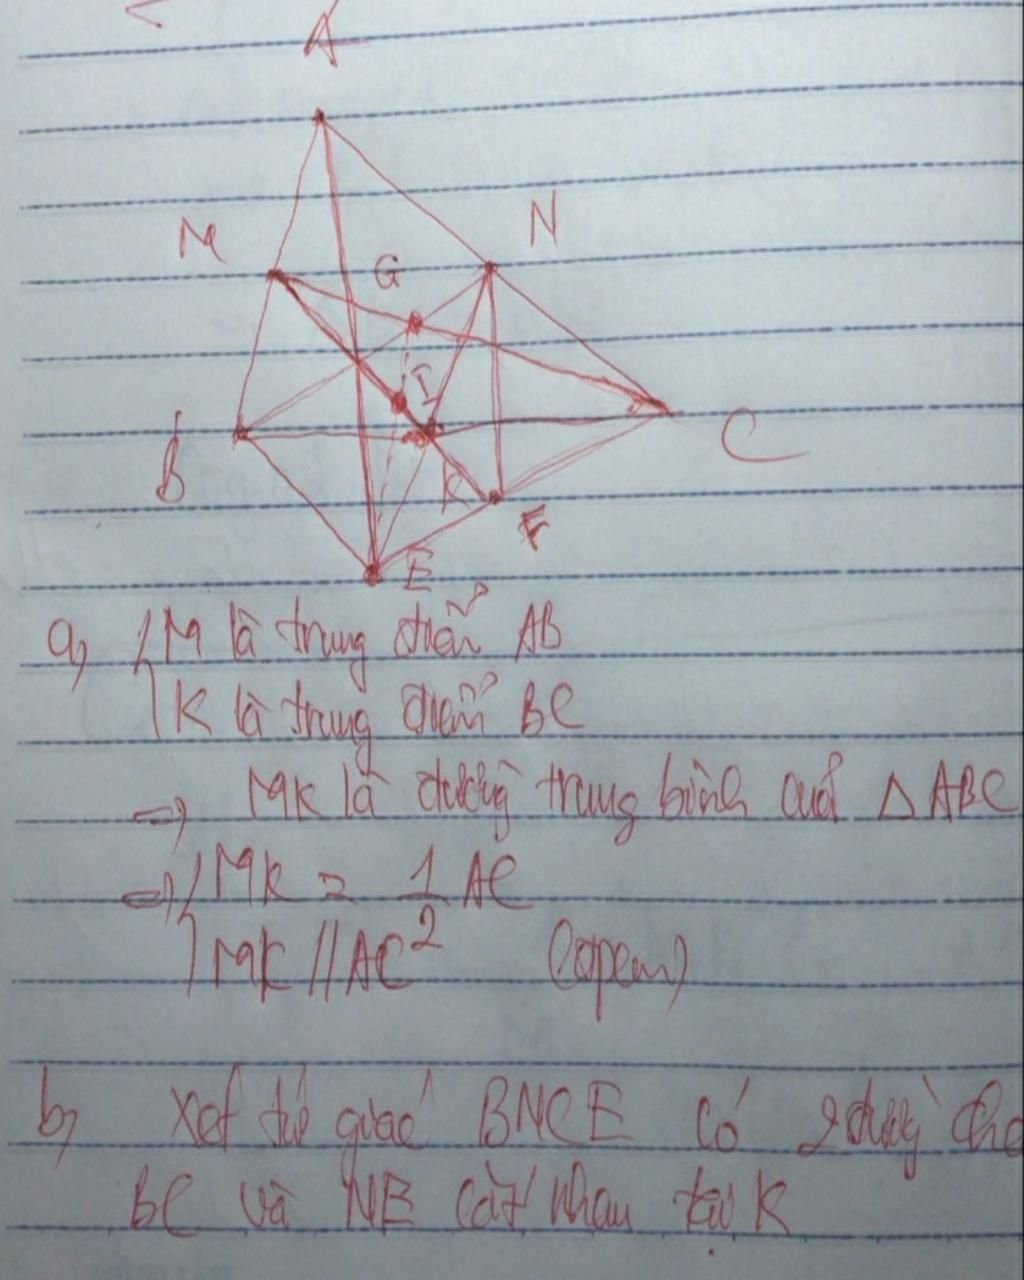 A
M
N
G
I
B
C
K
F
E
a, { M là trung điểm AB
K là trung điểm BC
=> MK là đường trung bình của △ ABC
=> { MK = 1/2 AC
MK // AC (đpcm)
b, Xét tứ giác BNCE có 2 đường ché
BC và NE cắt nhau tại K